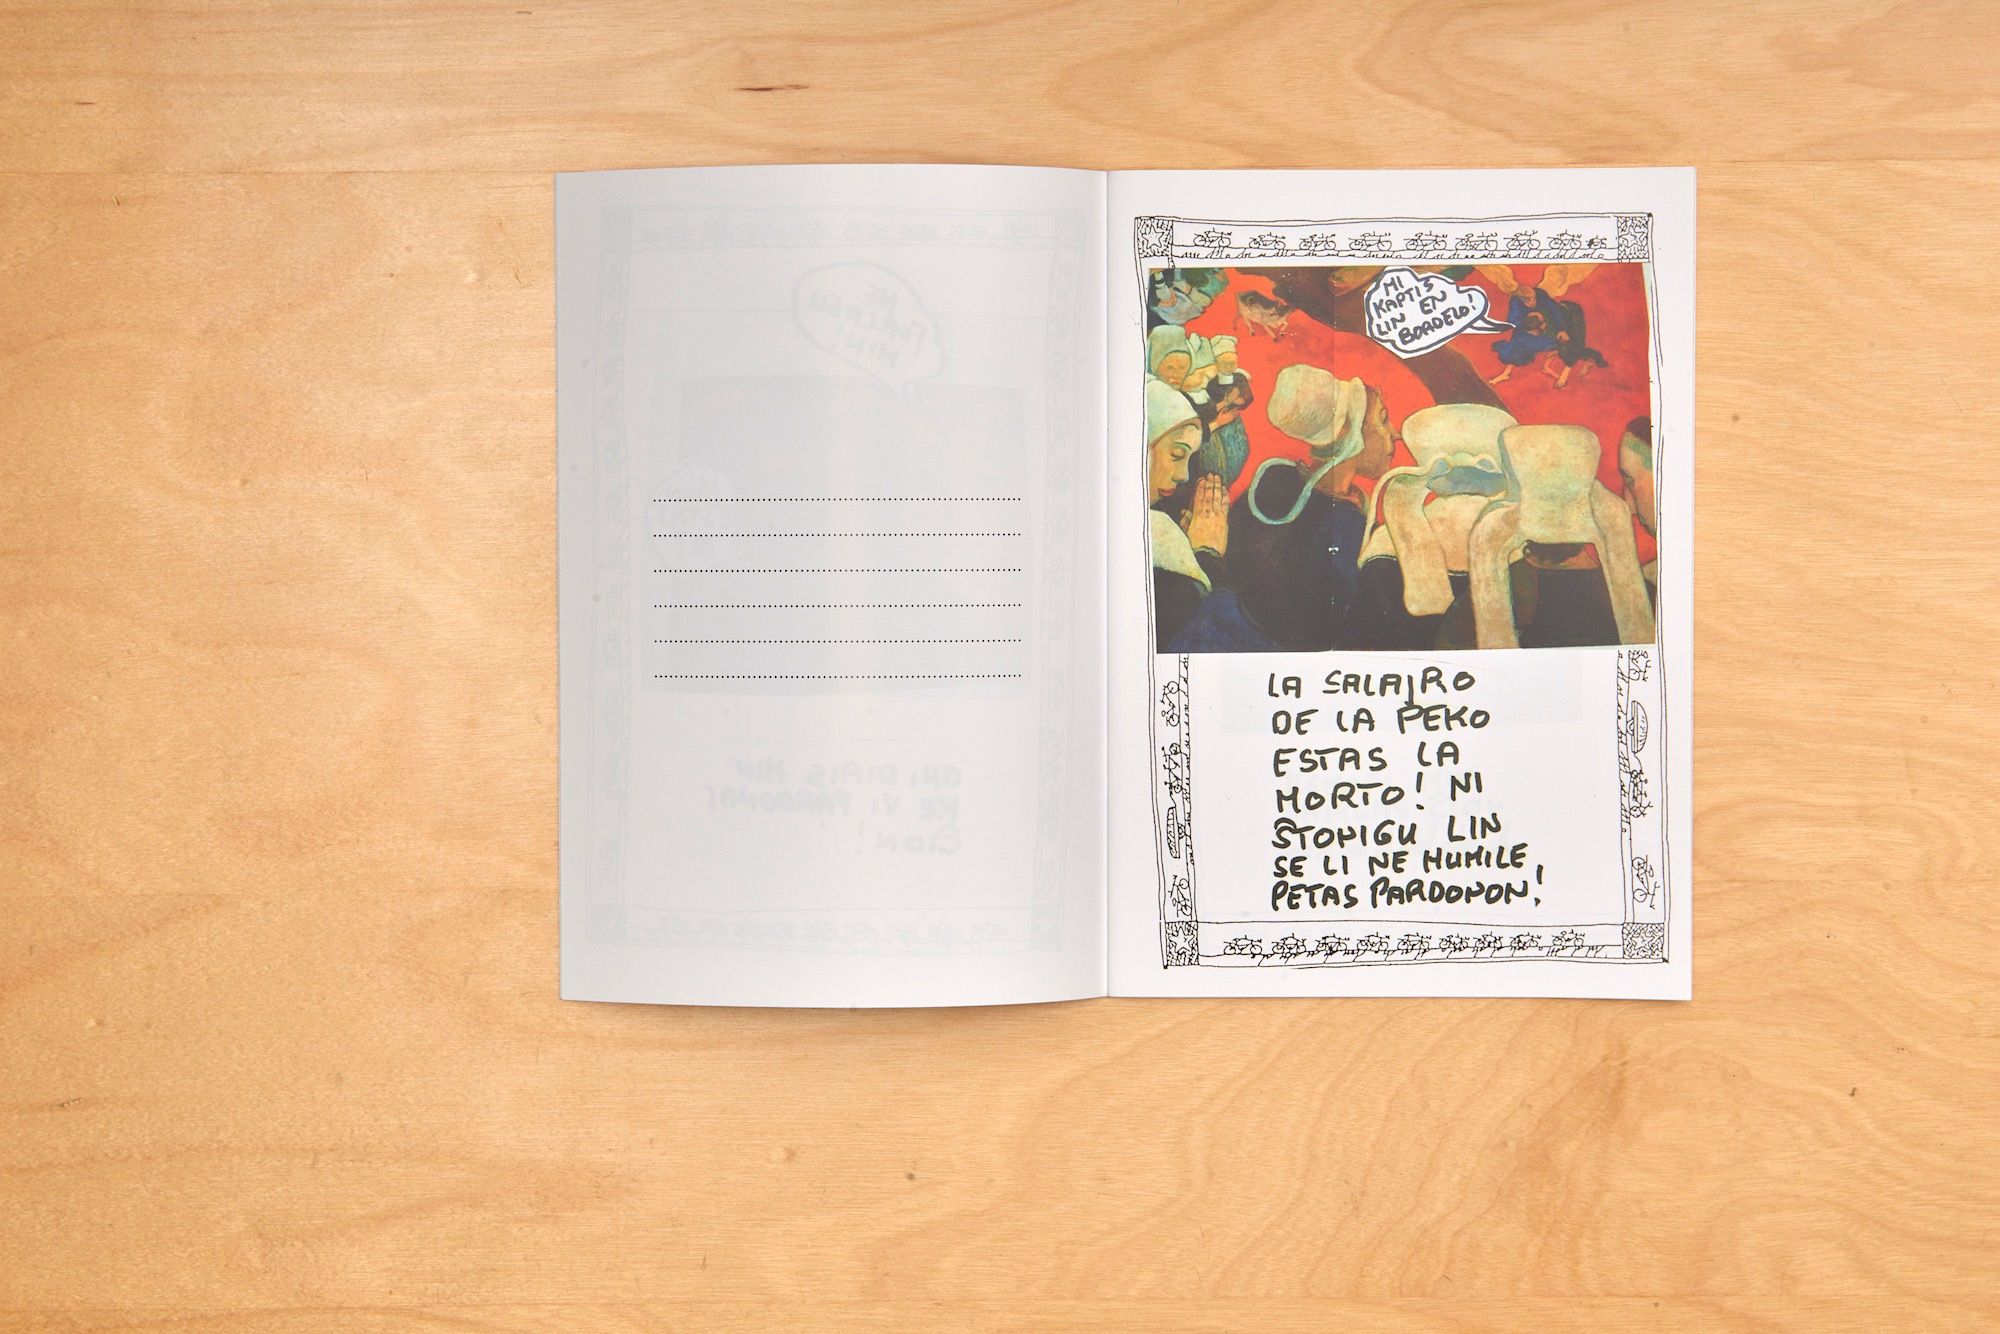 MI
KAPTIS
LIN EN
BORDELO!
LA SALAJRO
DE LA PEKO
ESTAS LA
MORTO! NI
ŜTONIGU LIN
SE LI NE HUMILE
PETAS PARDONON!